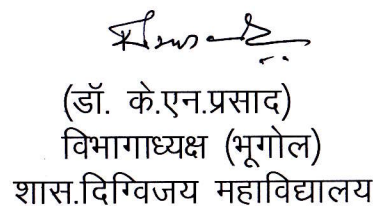 (डॉ. के.एन.प्रसाद)
विभागाध्यक्ष (भूगोल)
शास.दिग्विजय महाविद्यालय